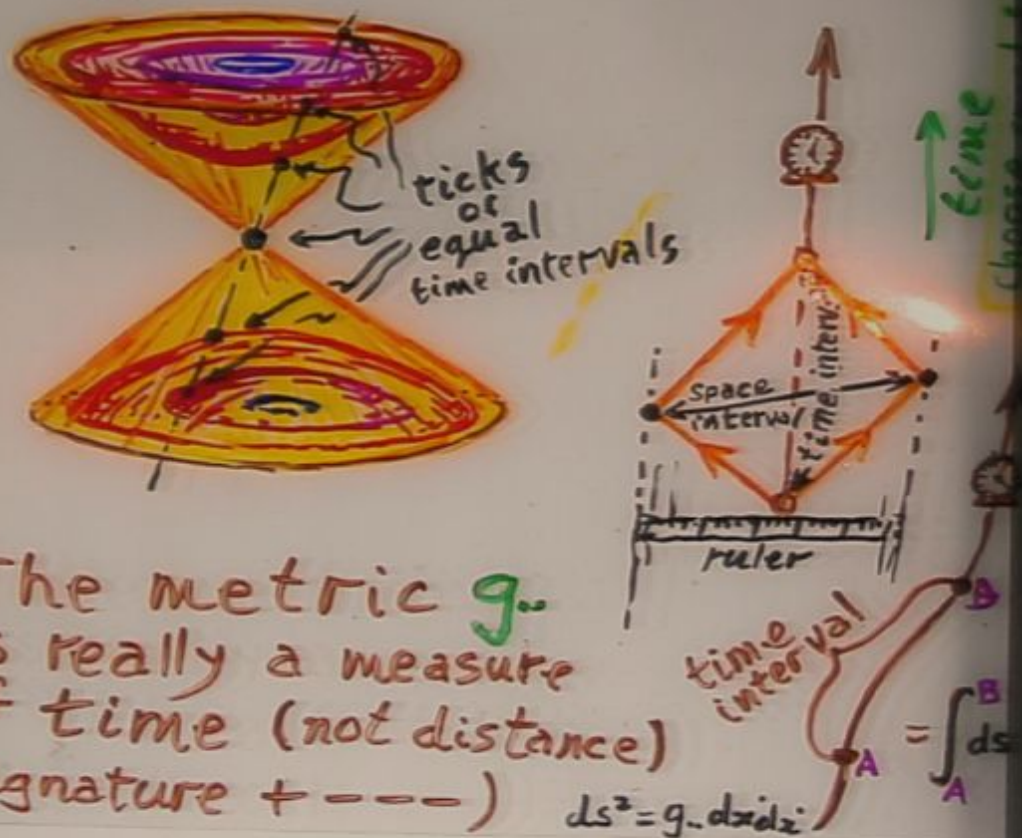 ticks
of
equal
time intervals
time
space
interval
time interv.
ruler
the metric g..
really a measure
time (not distance)
gnature + - - - -)
time
interval
B
A
= ∫ ds
B
A
ds² = g.. dx dx